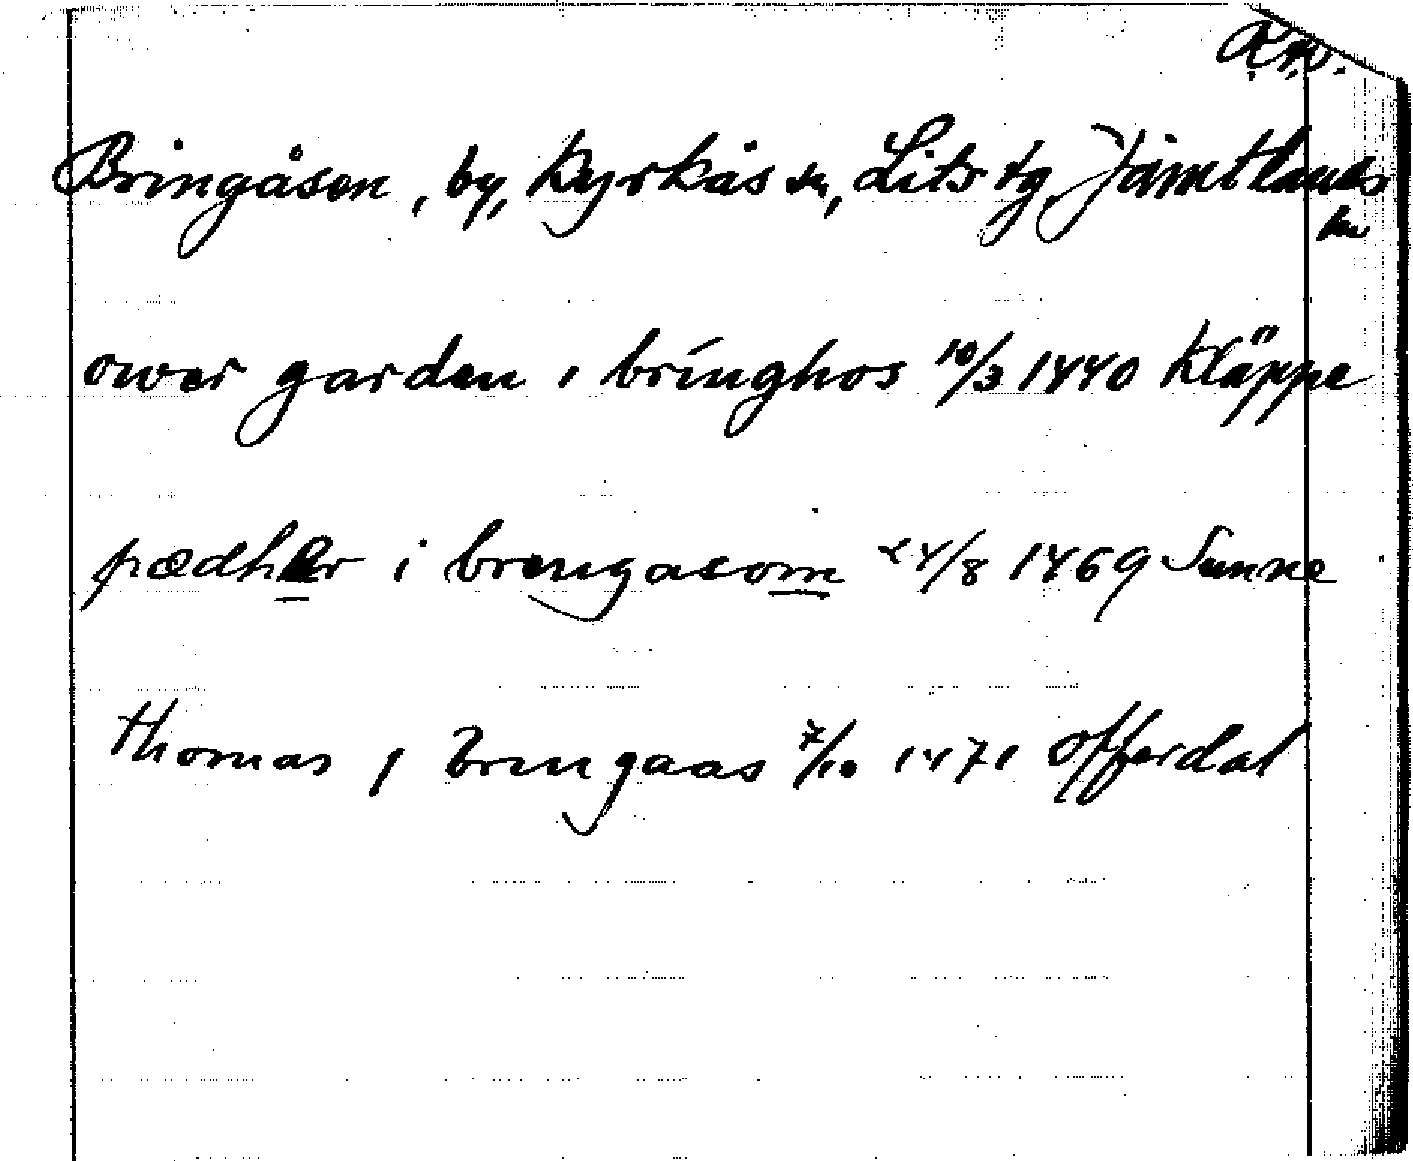 Bringåsen, by, Kyrkås sn, Lits tg Jämtlands
ower garden i bringhos 10/3 1440 Kläppe
pædher i brengasom 24/8 1469 Sunne
thomas j bringaas 7/10 1471 Offerdal